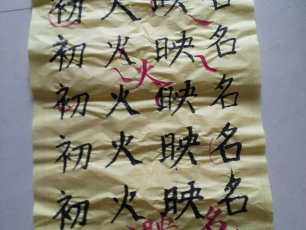 初火映名
初火映名
火
初火映名
初火映名
初火映名
映名